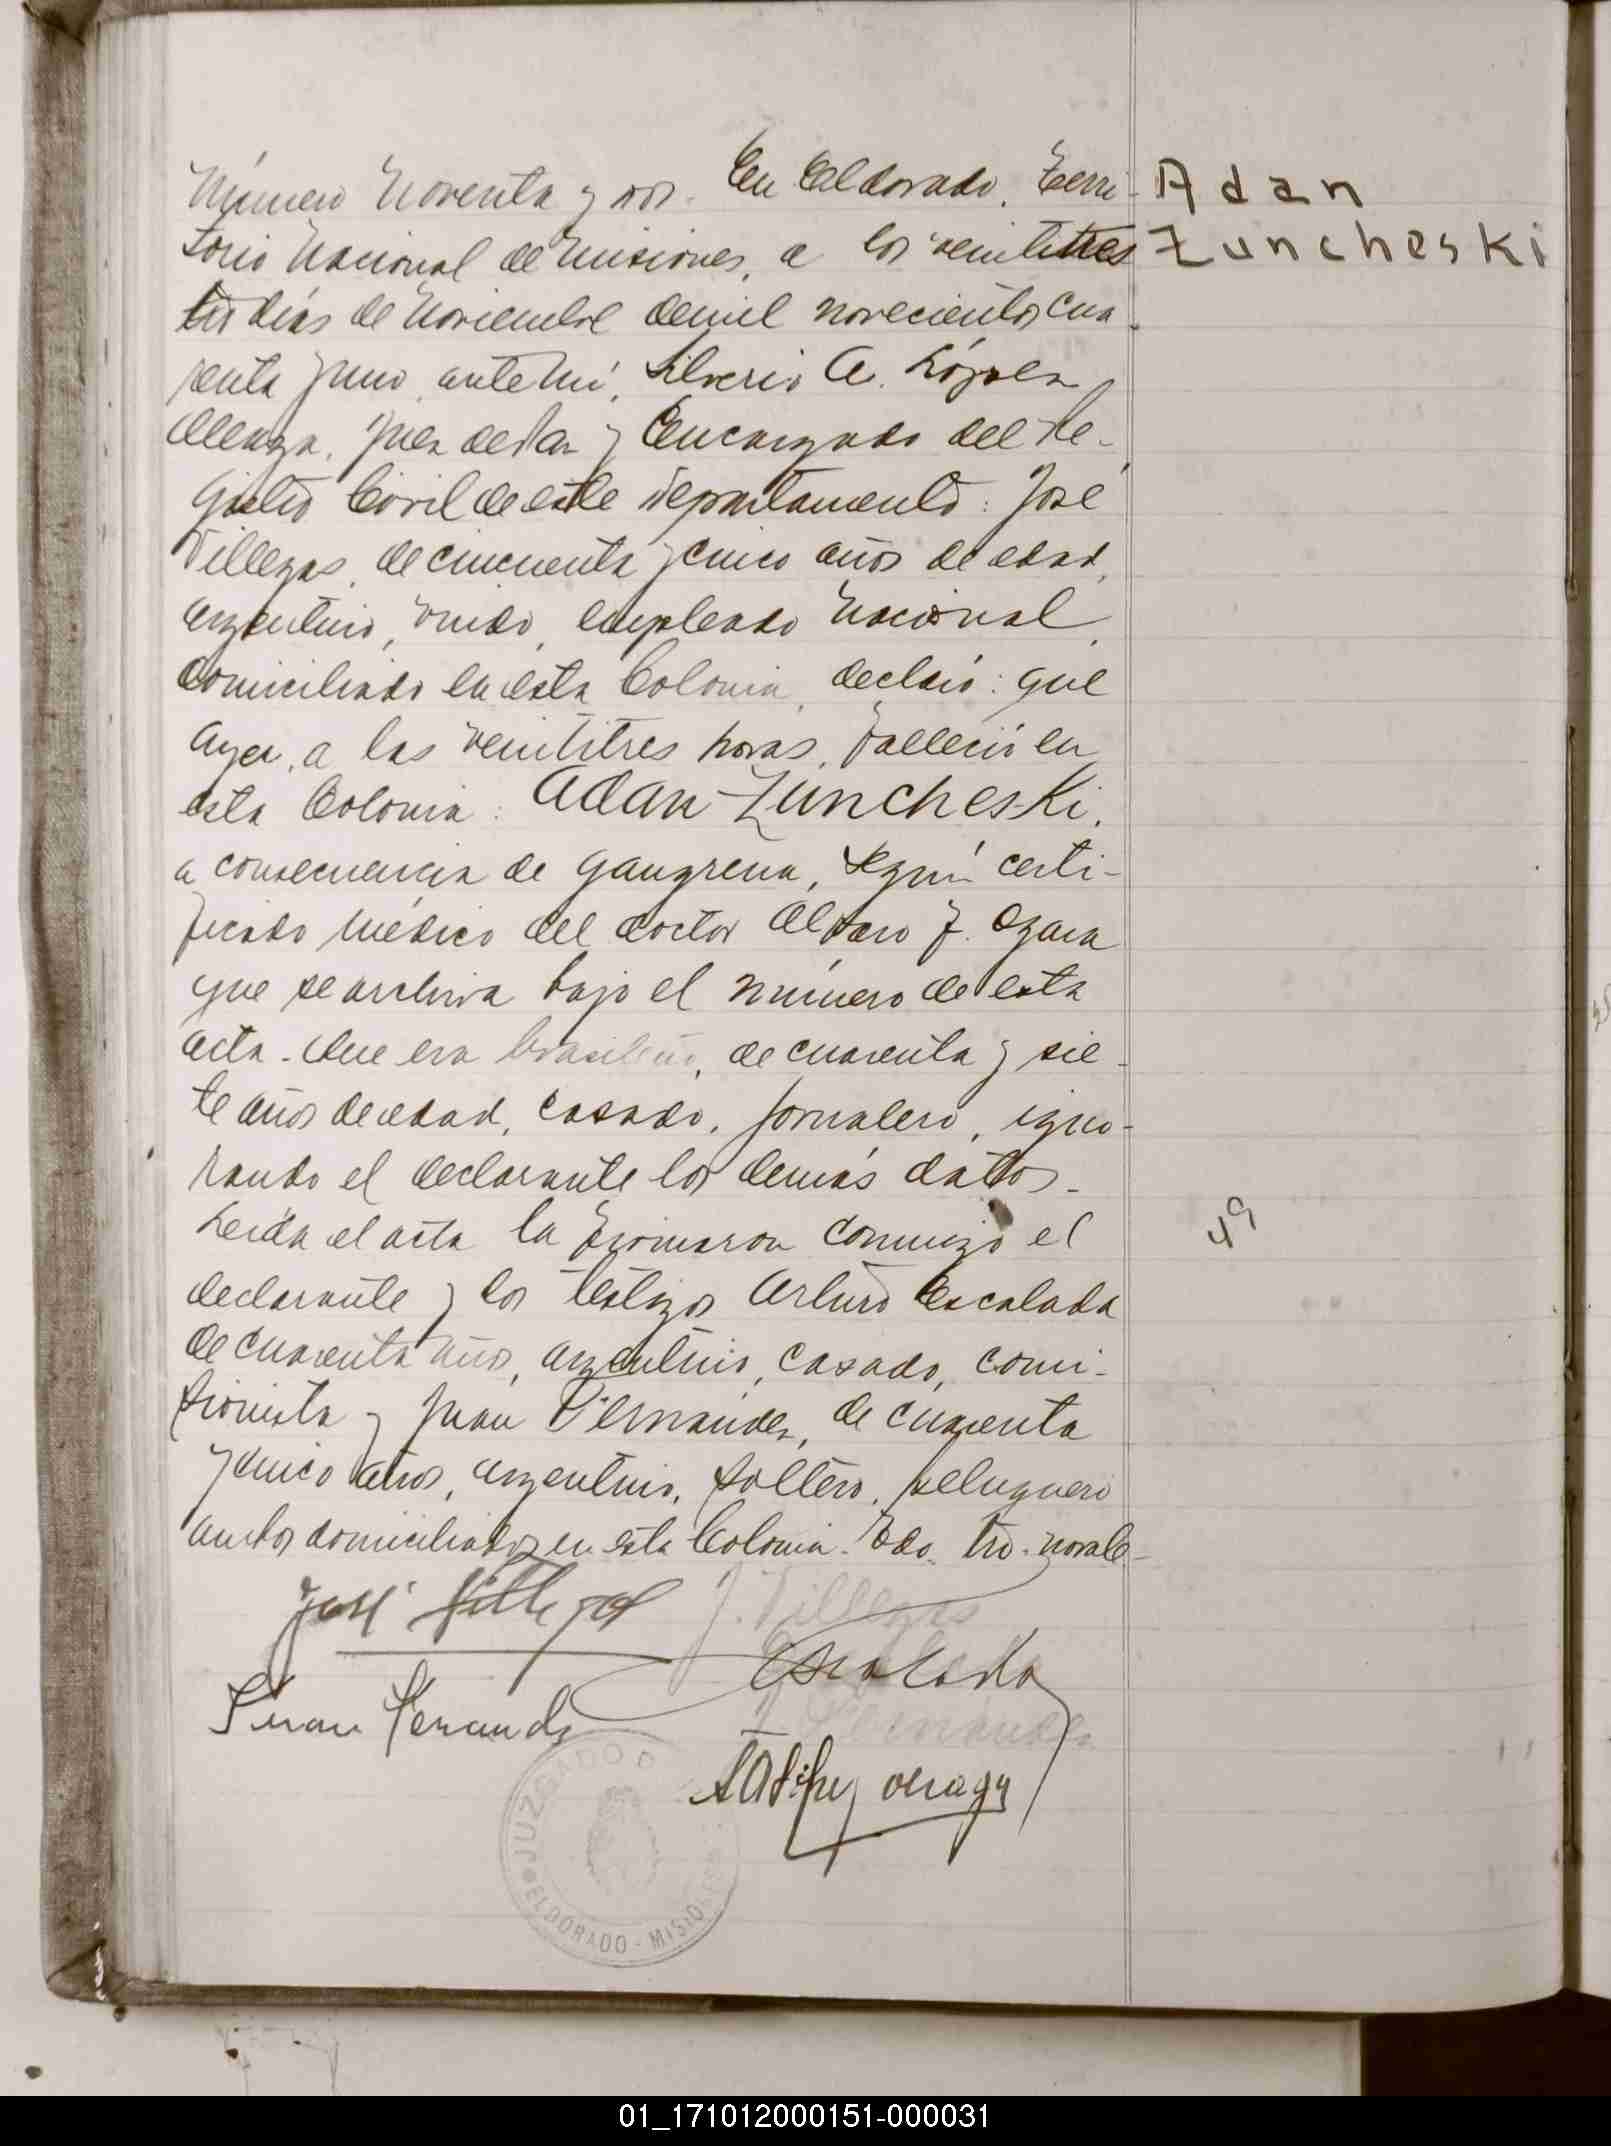 Número Noventa y dos. En Eldorado, Terri-
torio Nacional de Misiones, a los veintitres
tres días de Noviembre de mil novecientos cua-
renta y uno, ante mí, Silverio A. López
Alenza, Juez de Paz y Encargado del Re-
gistro Civil de este Departamento: José
Villegas, de cincuenta y cinco años de edad,
argentino, viudo, empleado Nacional,
domiciliado en esta Colonia, declaró: que
ayer, a las veintitres horas, falleció en
esta Colonia: Adan Zuncheski,
a consecuencia de gangrena, según certi-
ficado médico del doctor Alvaro F. Ozara
que se archiva bajo el número de esta
acta. Que era brasileño, de cuarenta y sie-
te años de edad, casado, jornalero, igno-
rando el declarante los demás datos.
Leída el acta la firmaron conmigo el
declarante y los testigos Arturo Escalada
de cuarenta años, argentino, casado, comi-
sionista y Juan Fernández, de cuarenta
y cinco años, argentino, soltero, peluquero
ambos domiciliados en esta Colonia. Edo. tres. no vale-
José Villegas
J. Villegas
Escalada
Juan Fernandz
J. Fernandez
JUZGADO D
ELDORADO - MISIONES
Adan
Zuncheski
49
01_171012000151-000031